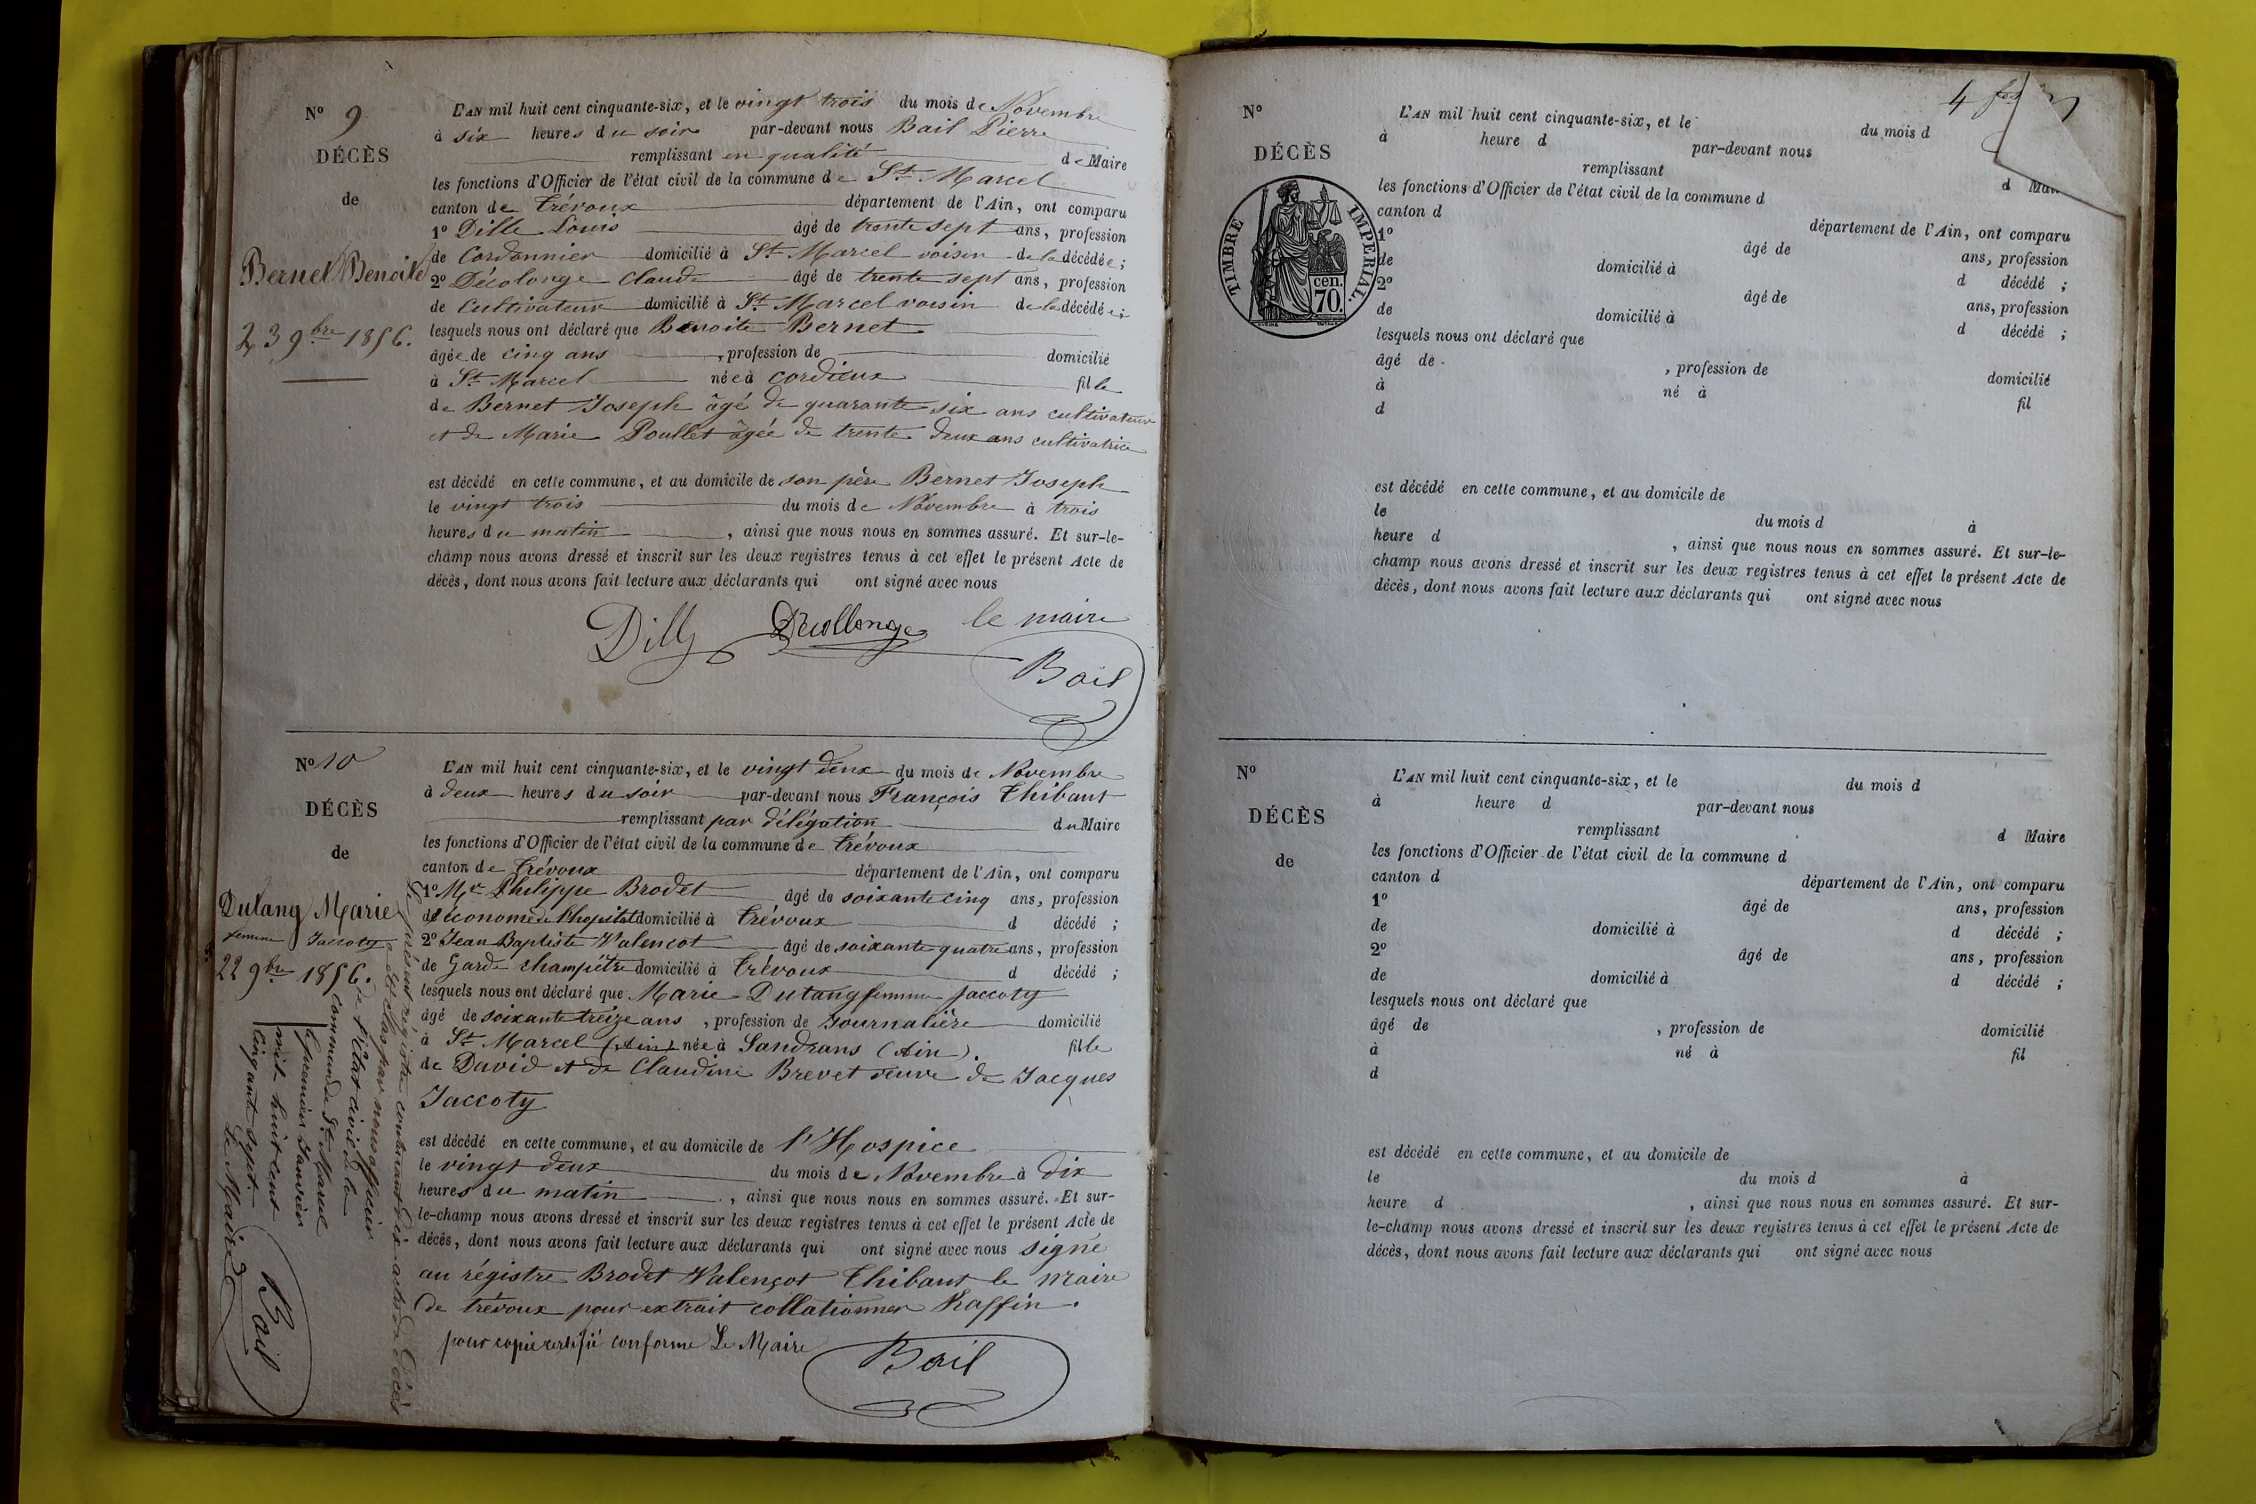 N° 9
DÉCÈS
de
Bernet Benoite
23 9bre 1856.
L'AN mil huit cent cinquante-six, et le vingt trois du mois de Novembre
à six heures du soir par-devant nous Bail Pierre
remplissant en qualité de Maire
les fonctions d'Officier de l'état civil de la commune de St Marcel
canton de Trévoux département de l'Ain, ont comparu
1° Dille Louis âgé de trente sept ans, profession
de Cordonnier domicilié à St Marcel voisin de la décédée ;
2° Décolonge Claude âgé de trente sept ans, profession
de Cultivateur domicilié à St Marcel voisin de la décédée ;
lesquels nous ont déclaré que Benoite Bernet
âgée de cinq ans , profession de domicilié
à St Marcel née à cordieux fille
de Bernet Joseph âgé de quarante six ans cultivateur
et de Marie Poullet âgée de trente deux ans cultivatrice
est décédé en cette commune, et au domicile de son père Bernet Joseph
le vingt trois du mois de Novembre à trois
heures du matin , ainsi que nous nous en sommes assuré. Et sur-le-
champ nous avons dressé et inscrit sur les deux registres tenus à cet effet le présent Acte de
décès, dont nous avons fait lecture aux déclarants qui ont signé avec nous
Dilly Decollonge le maire
Bail
N° 10
DÉCÈS
de
Dutang Marie
femme Jaccoty
22 9bre 1856.
L'AN mil huit cent cinquante-six, et le vingt deux du mois de Novembre
à deux heures du soir par-devant nous François Thibaut
remplissant par délégation du Maire
les fonctions d'Officier de l'état civil de la commune de Trévoux
canton de Trévoux département de l'Ain, ont comparu
1° Mr Philippe Brodet âgé de soixante cinq ans, profession
de économe de l'hopital domicilié à Trévoux d décédé ;
2° Jean Baptiste Valençot âgé de soixante quatre ans, profession
de Garde champêtre domicilié à Trévoux d décédé ;
lesquels nous ont déclaré que Marie Dutang femme Jaccoty
âgé de soixante treize ans , profession de Journalière domicilié
à St Marcel (Ain) née à Sandrans (Ain). fille
de David et de Claudine Brevet veuve de Jacques
Jaccoty
est décédé en cette commune, et au domicile de l'Hospice
le vingt deux du mois de Novembre à dix
heures du matin , ainsi que nous nous en sommes assuré. Et sur-
le-champ nous avons dressé et inscrit sur les deux registres tenus à cet effet le présent Acte de
décès, dont nous avons fait lecture aux déclarants qui ont signé avec nous signé
au régistre Brodet Valençot Thibaut le maire
de trévoux pour extrait collationner Raffin.
pour copie certifié conforme Le Maire
Bail
Le présent régistre contenant dix actes de Décès
a été clos par nous officier
de l'état civil de la
commune de St Marcel
le premier Janvier
mil huit cent
cinquante sept.
Le Maire
Bail
4
N°
DÉCÈS
TIMBRE IMPERIAL.
cen.
70.
L'AN mil huit cent cinquante-six, et le du mois d
à heure d par-devant nous
remplissant d Maire
les fonctions d'Officier de l'état civil de la commune d
canton d département de l'Ain, ont comparu
1° âgé de ans, profession
de domicilié à d décédé ;
2° âgé de ans, profession
de domicilié à d décédé ;
lesquels nous ont déclaré que
âgé de , profession de domicilié
à né à fil
d
est décédé en cette commune, et au domicile de
le du mois d à
heure d , ainsi que nous nous en sommes assuré. Et sur-le-
champ nous avons dressé et inscrit sur les deux registres tenus à cet effet le présent Acte de
décès, dont nous avons fait lecture aux déclarants qui ont signé avec nous
N°
DÉCÈS
de
L'AN mil huit cent cinquante-six, et le du mois d
à heure d par-devant nous
remplissant d Maire
les fonctions d'Officier de l'état civil de la commune d
canton d département de l'Ain, ont comparu
1° âgé de ans, profession
de domicilié à d décédé ;
2° âgé de ans, profession
de domicilié à d décédé ;
lesquels nous ont déclaré que
âgé de , profession de domicilié
à né à fil
d
est décédé en cette commune, et au domicile de
le du mois d à
heure d , ainsi que nous nous en sommes assuré. Et sur-
le-champ nous avons dressé et inscrit sur les deux registres tenus à cet effet le présent Acte de
décès, dont nous avons fait lecture aux déclarants qui ont signé avec nous